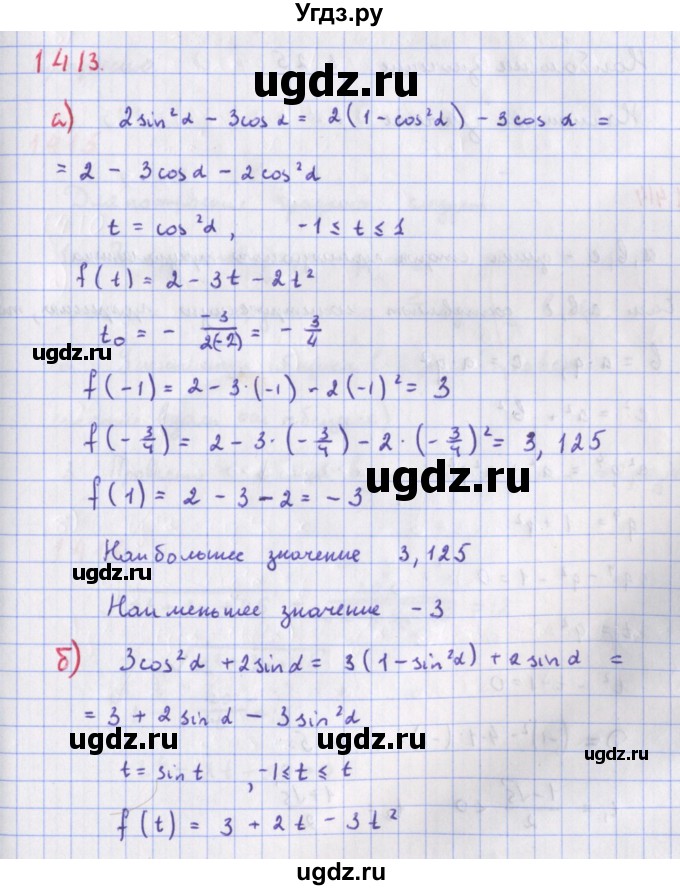 Угдз.ру
1413.
ugdz.ru
а) 2sin²α − 3cos α = 2(1 − cos²α) − 3cos α =
= 2 − 3cos α − 2cos²α
t = cos²α, −1 ≤ t ≤ 1
f(t) = 2 − 3t − 2t²
t₀ = − −3/2(−2) = − 3/4
ugdz.ru
f(−1) = 2 − 3·(−1) − 2(−1)² = 3
f(−3/4) = 2 − 3·(−3/4) − 2·(−3/4)² = 3,125
ugdz.ru
f(1) = 2 − 3 − 2 = −3
Наибольшее значение 3,125
ugdz.ru
Наименьшее значение −3
б) 3cos²α + 2sin α = 3(1 − sin²α) + 2sin α =
= 3 + 2sin α − 3sin²α
ugdz.ru ugdz.ru
t = sin t, −1 ≤ t ≤ t
f(t) = 3 + 2t − 3t²
ugdz.ru